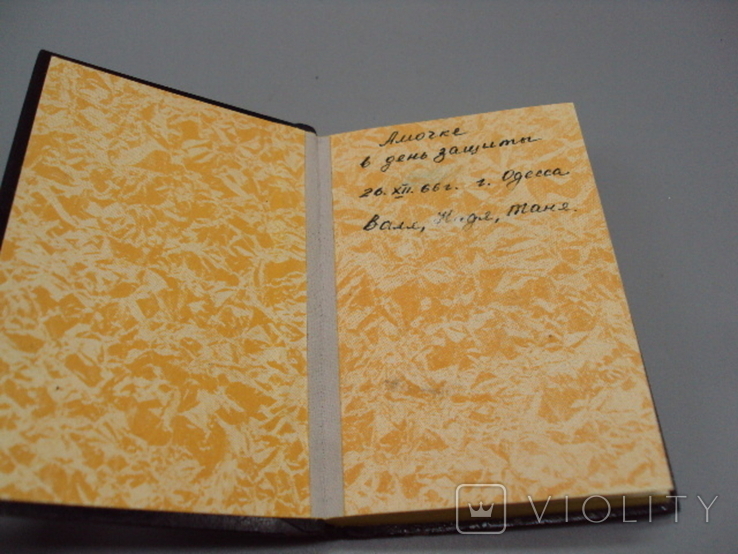 Амочке
в день защиты
26.XII.66г. г. Одесса
Валя, Надя, Таня.
VIOLITY